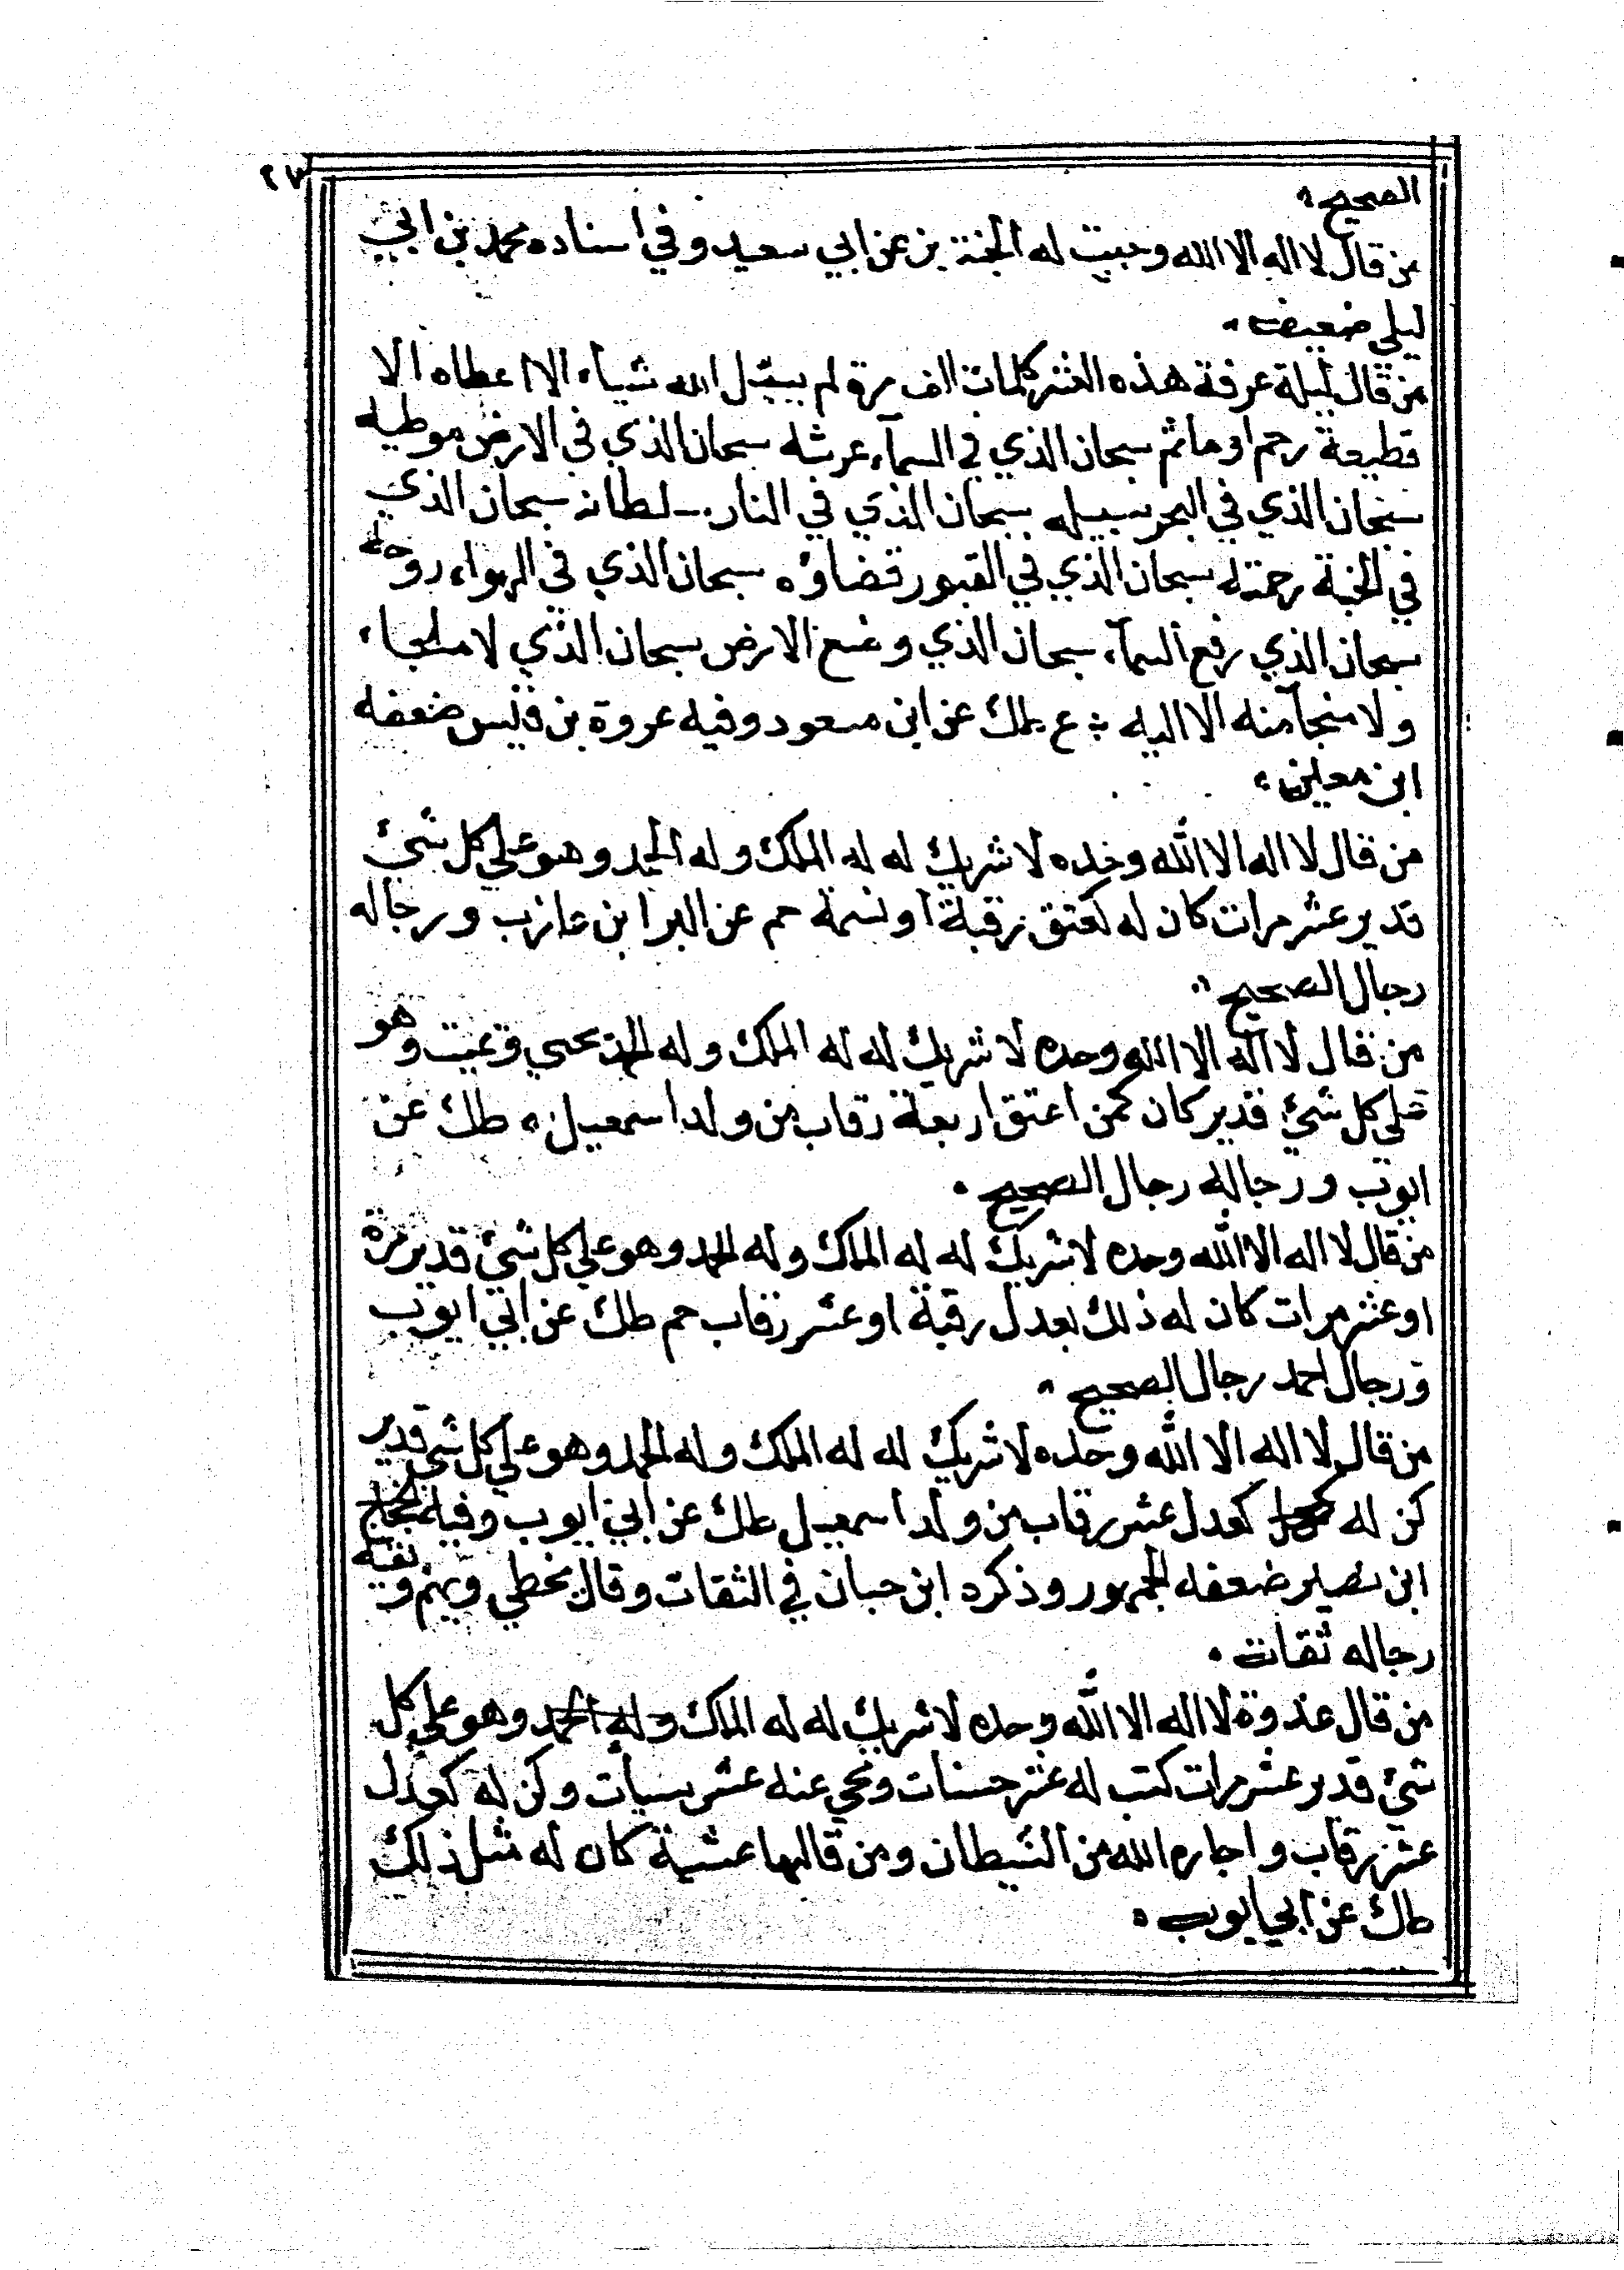 ٢٧
الصحيح
من قال لا اله الا الله وجبت له الجنة بز عن ابي سعيد وفي اسناده محمد بن ابي
ليلي ضعيف
من قال ليلة عرفة هذه العشر كلمات الف مرة لم يسئل الله شياء الا اعطاه الا
قطيعة رحم او ماثم سبحان الذي في السمآء عرشه سبحان الذي في الارض موطيه
سبحان الذي في البحر سبيله سبحان الذي في النار سلطانه سبحان الذي
في الجنة رحمته سبحان الذي في القبور قضاؤه سبحان الذي في الهواء روحه
سبحان الذي رفع السمآء سبحان الذي وضع الارض سبحان الذي لا ملجاء
ولا منجا منه الا اليه ع طك عن ابن مسعود وفيه عروة بن قيس ضعفه
ابن معين
من قال لا اله الا الله وحده لا شريك له له الملك وله الحمد وهو علي كل شئ
قدير عشر مرات كان له كعتق رقبة او نسمة حم عن البرا ابن عازب ورجاله
رجال الصحيح
من قال لا اله الا الله وحده لا شريك له له الملك وله الحمد يحيي ويميت وهو
علي كل شئ قدير كان كمن اعتق اربعة رقاب من ولد اسمعيل طك عن
ايوب ورجاله رجال الصحيح
من قال لا اله الا الله وحده لا شريك له له الملك وله الحمد وهو علي كل شئ قدير مرة
او عشر مرات كان له ذلك بعدل رقبة او عشر رقاب حم طك عن ابي ايوب
ورجال احمد رجال الصحيح
من قال لا اله الا الله وحده لا شريك له له الملك وله الحمد وهو علي كل شئ قدير
كن له كعدل عشر رقاب من ولد اسمعيل طك عن ابي ايوب وفيه الحجاج
ابن نصير ضعفه الجمهور وذكره ابن حبان في الثقات وقال يخطي ويهم وبقية
رجاله ثقات
من قال غدوة لا اله الا الله وحده لا شريك له له الملك وله الحمد وهو علي كل
شئ قدير عشر مرات كتب له عشر حسنات ومحي عنه عشر سيأت وكن له كعدل
عشر رقاب واجاره الله من الشيطان ومن قالها عشية كان له مثل ذلك
طك عن ابي ايوب